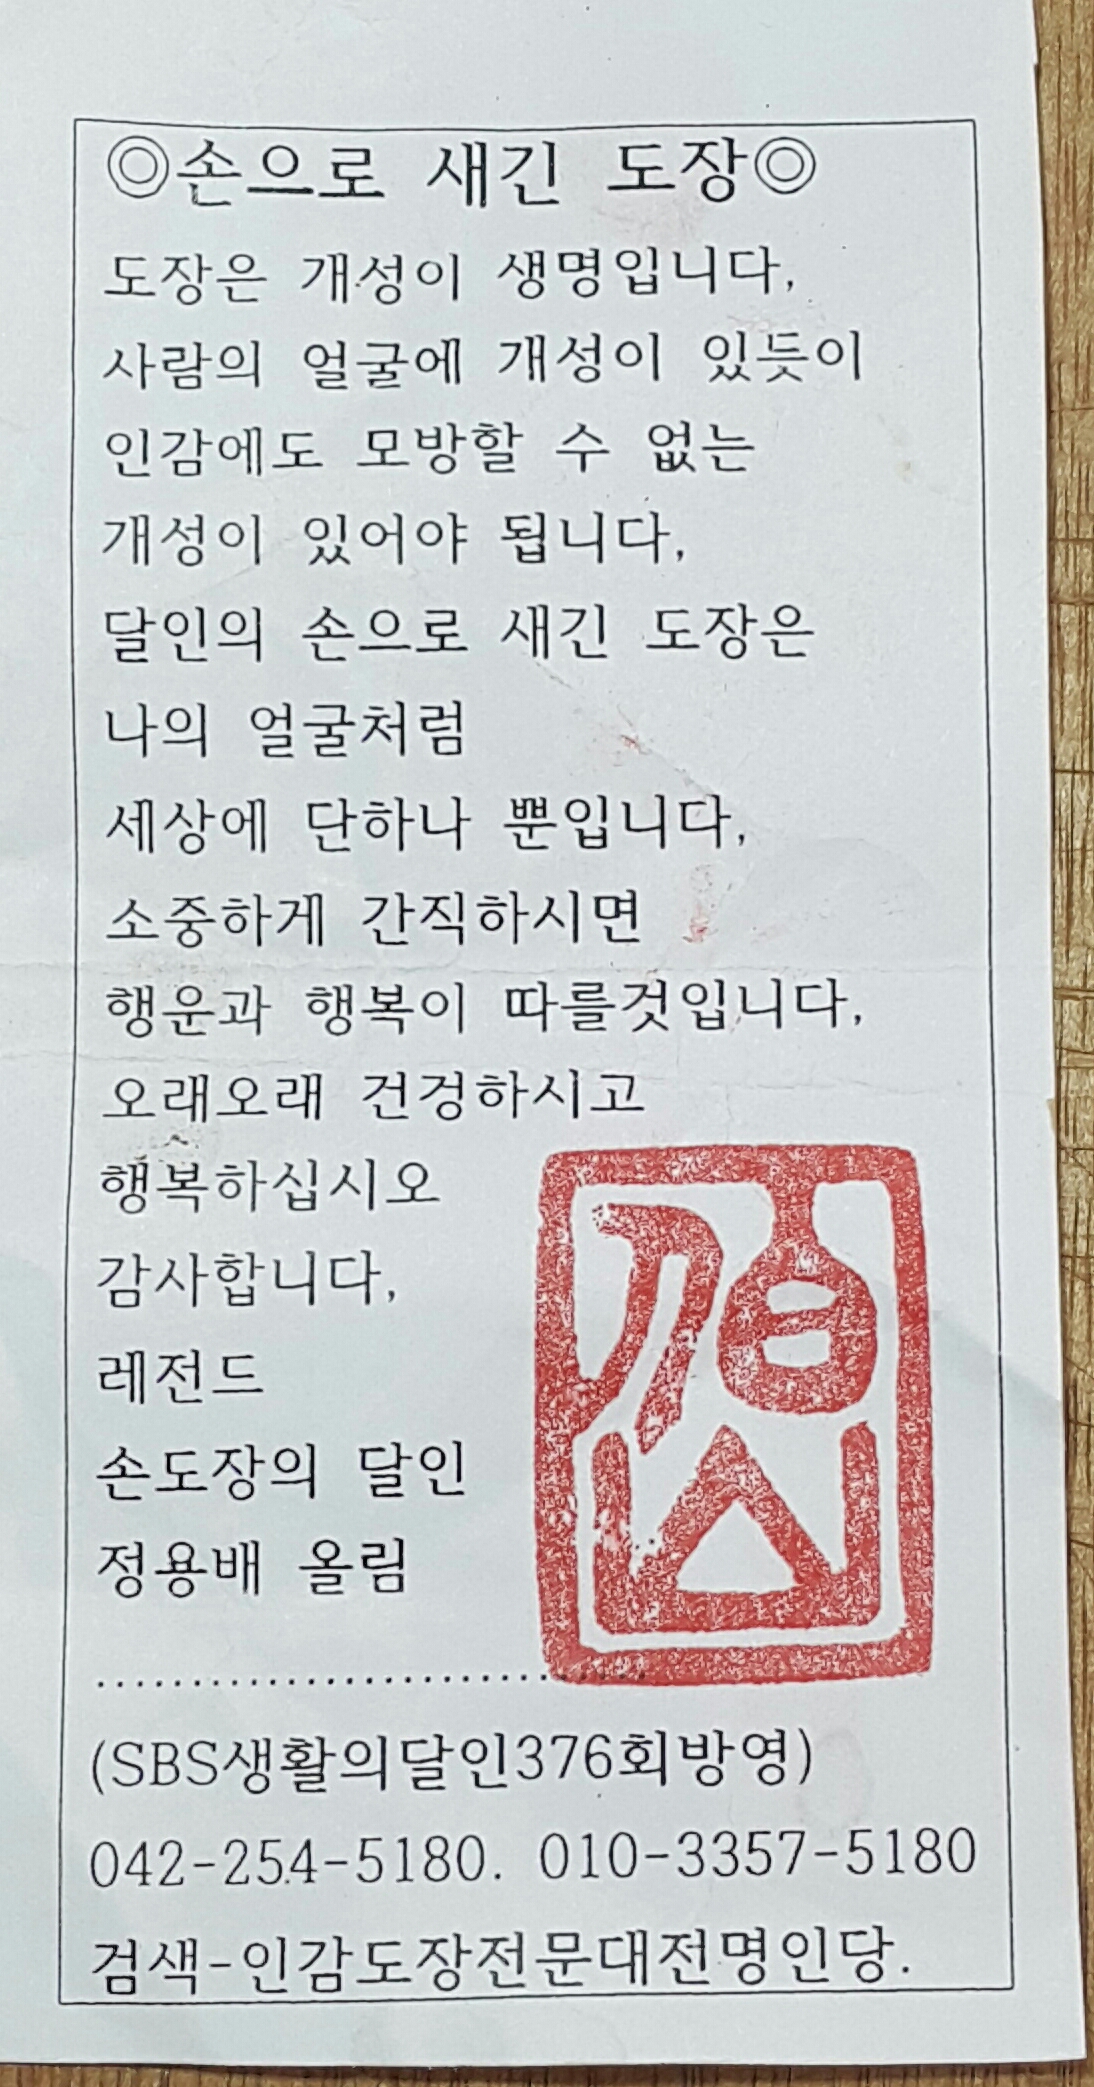 ◎손으로 새긴 도장◎
도장은 개성이 생명입니다,
사람의 얼굴에 개성이 있듯이
인감에도 모방할 수 없는
개성이 있어야 됩니다,
달인의 손으로 새긴 도장은
나의 얼굴처럼
세상에 단하나 뿐입니다,
소중하게 간직하시면
행운과 행복이 따를것입니다,
오래오래 건겅하시고
행복하십시오
감사합니다,
레전드
손도장의 달인
정용배 올림
..............................
(SBS생활의달인376회방영)
042-254-5180. 010-3357-5180
검색-인감도장전문대전명인당.